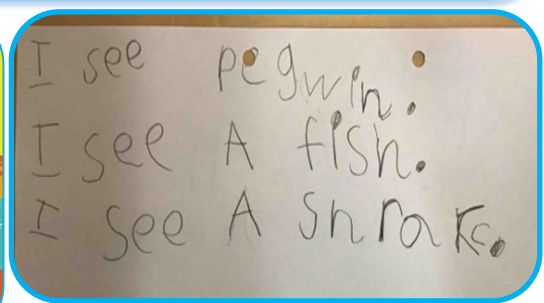 I see pegwin.
I see A fish.
I see A shrak.